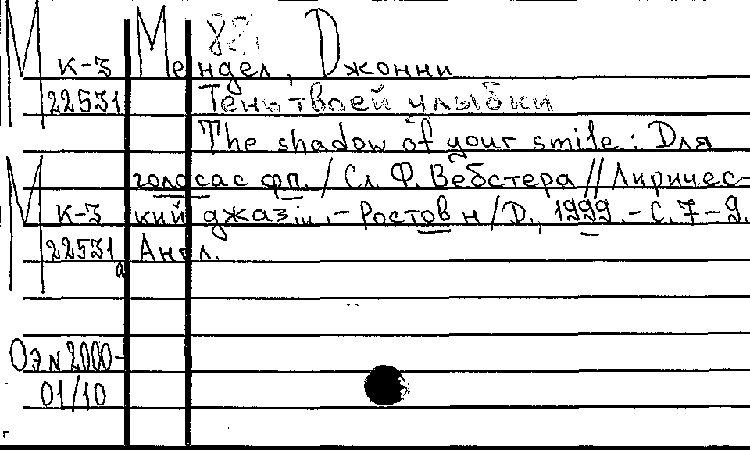 М
К-3 Мендел, Джонни
22531 Тень твоей улыбки
The shadow of your smile : Для
М голоса с фп. / Сл. Ф. Вебстера // Лиричес-
К-3 кий джаз... .- Ростов н/Д., 1999 .- С. 7-9.
22531а Англ.
ОЭ N 2000-
01/10